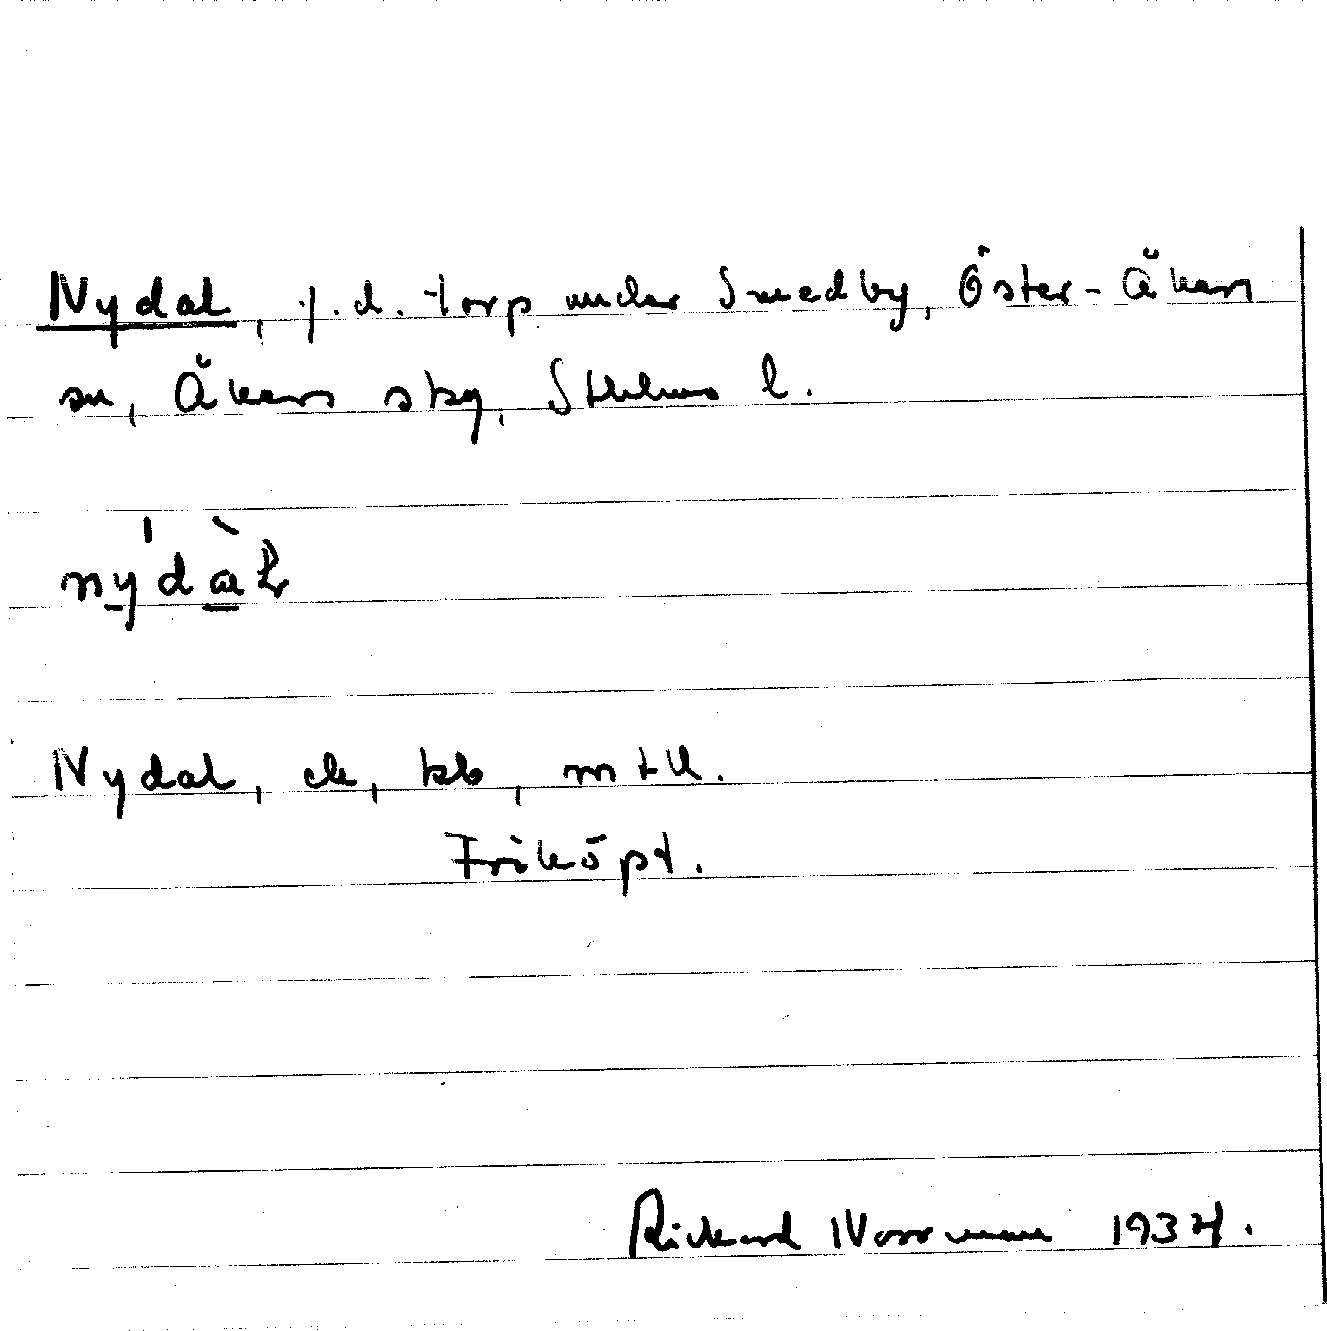 Nydal, f. d. torp under Smedby, Öster-Åkers
sn, Åkers skg, Sthlms l.
nýdàl
Nydal, ek, kb, mtl.
Friköpt.
Rickard Norrman 1934.